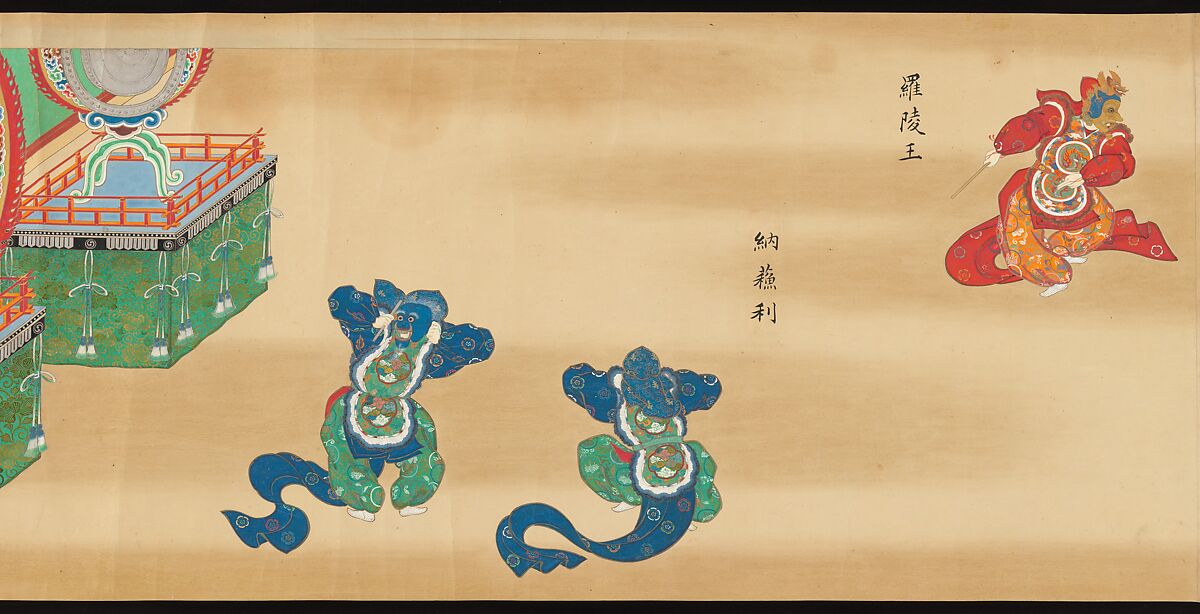 羅陵王
納蘓利